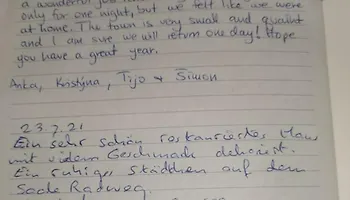 a wonderful
only for one night, but we felt like we were
at home. The town is very small and quaint
and I am sure we will return one day! Hope
you have a great year.
Anka, Kristýna, Tijo & Šimon
23.7.21
Ein sehr schön restauriertes Haus
mit vielem Geschmack dekoriert.
Ein ruhiges Städtchen auf dem
Saale Radweg.